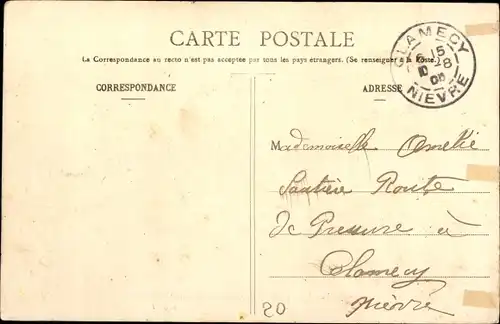 CARTE POSTALE
La Correspondance au recto n'est pas acceptée par tous les pays étrangers. (Se renseigner à la Poste.)
CORRESPONDANCE
ADRESSE
CLAMECY
NIEVRE
6 15
28
Mademoiselle
Route
De Pressure à
Clamecy
Nièvre
20